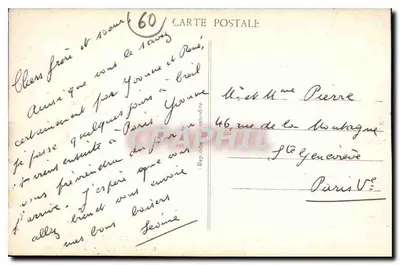 60
CARTE POSTALE
Chers frère et soeur,
Ainsi que vous le savez
certainement par Yvonne et René,
je passe quelques jours à Creil
et vais ensuite à Paris. Yvonne
vous préviendra du jour où
j'arrive. J'espère que vous
allez bien et vous envoie
mes bons baisers
Léonie
Mr et Mme Pierre
46, rue de la Montagne
Ste Geneviève
Paris Ve